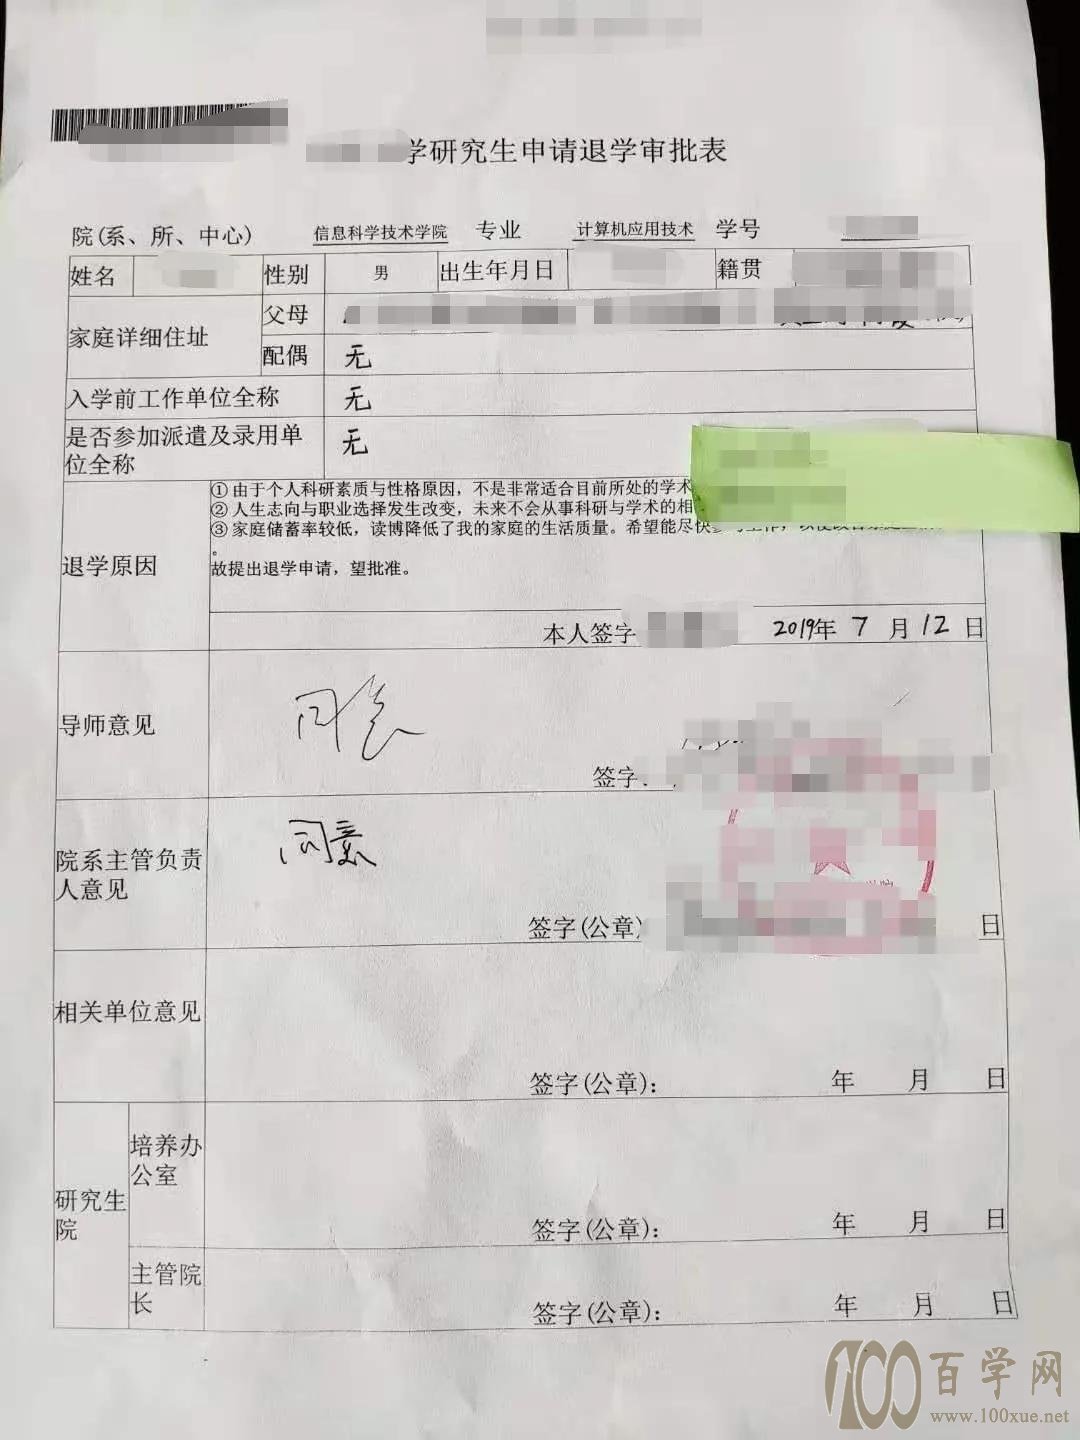 学研究生申请退学审批表
院(系、所、中心) 信息科学技术学院 专业 计算机应用技术 学号
姓名 性别 男 出生年月日 籍贯
家庭详细住址 父母
配偶 无
入学前工作单位全称 无
是否参加派遣及录用单位全称 无
退学原因
① 由于个人科研素质与性格原因，不是非常适合目前所处的学术
② 人生志向与职业选择发生改变，未来不会从事科研与学术的相
③ 家庭储蓄率较低，读博降低了我的家庭的生活质量。希望能尽快
。
故提出退学申请，望批准。
本人签字 2019年 7 月 12 日
导师意见 同意
签字
院系主管负责人意见 同意
签字(公章) 日
相关单位意见
签字(公章)： 年 月 日
研究生院
培养办公室
签字(公章)： 年 月 日
主管院长
签字(公章)： 年 月 日
100百学网
www.100xue.net